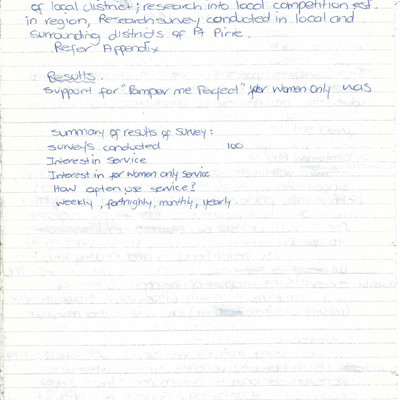 of local district; research into local competition est.
in region, Research survey conducted in local and
surrounding districts of Pt Pirie.
Refer Appendix
Results.
Support for "Pamper me Perfect" for Women Only was
Summary of results of Survey:
surveys conducted 100
Interest in Service
Interest in for Women only service
How often use service?
weekly, fortnightly, monthly, yearly.